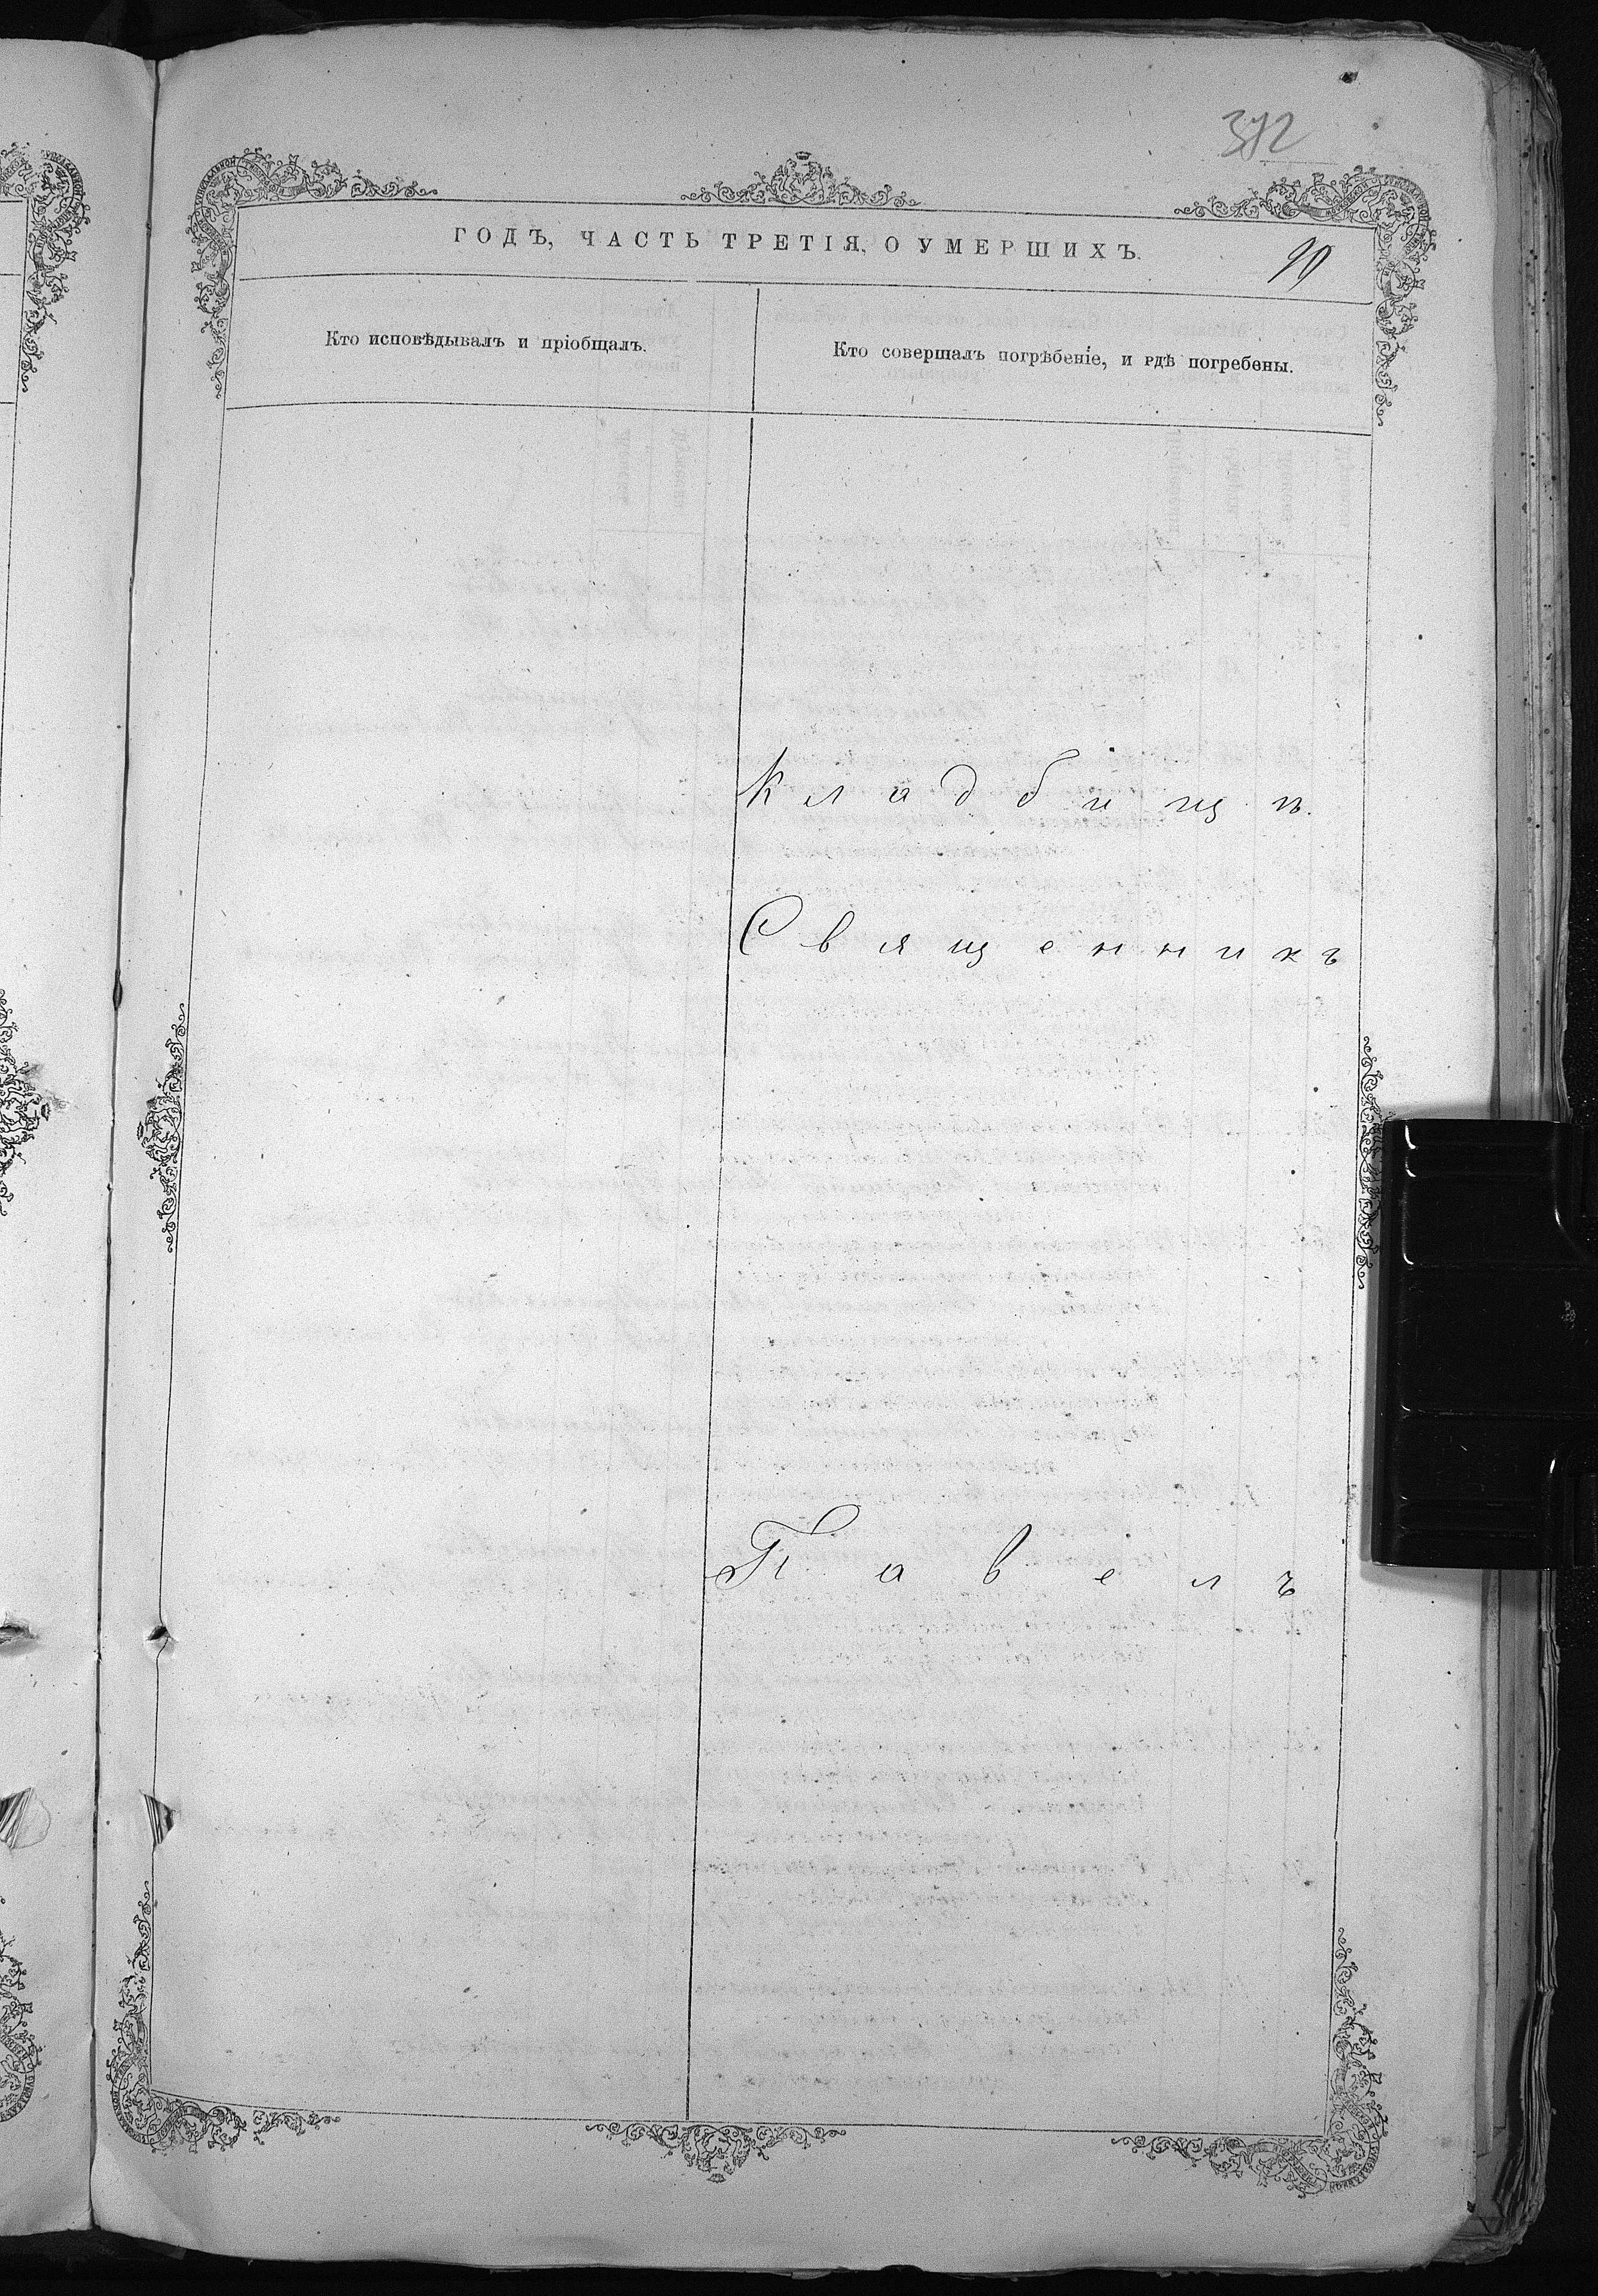 372
ГОДЪ, ЧАСТЬ ТРЕТІЯ, О УМЕРШИХЪ.
90
Кто исповѣдывалъ и пріобщалъ.
Кто совершалъ погрѣбеніе, и гдѣ погребены.
Кладбищѣ.
Священникъ
Павелъ